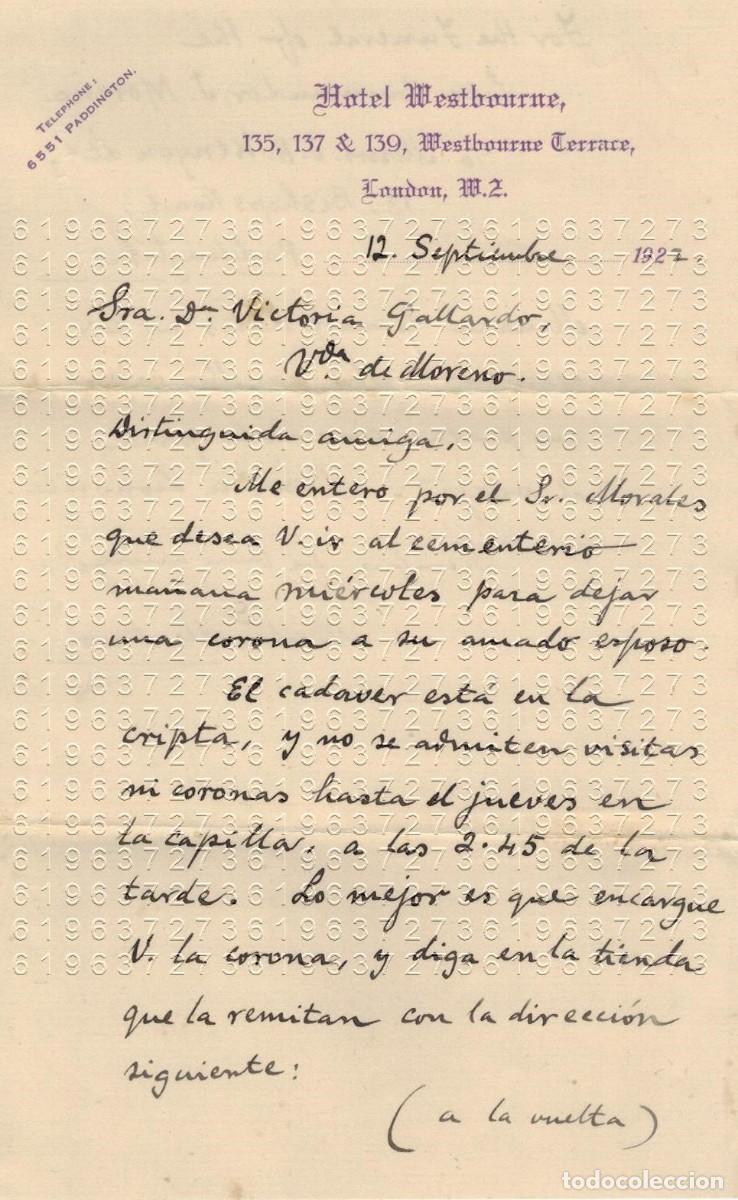 TELEPHONE:
6551 PADDINGTON.
Hotel Westbourne,
135, 137 & 139, Westbourne Terrace,
London, W.2.
12. Septiembre 1922.
Sra. Dª. Victoria Gallardo,
Vda de Moreno.
Distinguida amiga,
Me entero por el Sr. Morales
que desea V. ir al cementerio
mañana miércoles para dejar
una corona a su amado esposo.
El cadaver está en la
cripta, y no se admiten visitas
ni coronas hasta el jueves en
la capilla, a las 2.45 de la
tarde. Lo mejor es que encargue
V. la corona, y diga en la tienda
que la remitan con la dirección
siguiente:
(a la vuelta)
todocoleccion